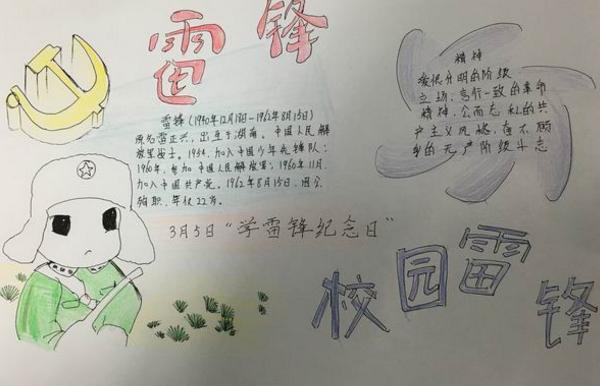 雷锋
雷锋(1940年12月18日-1962年8月15日)
原名雷正兴,出生于湖南,中国人民解
放军战士。1954,加入中国少年先锋队;
1960年,参加中国人民解放军;1960年11月,
加入中国共产党。1962年8月15日,因公
殉职,年仅22岁。
3月5日“学雷锋纪念日”
精神
爱憎分明的阶级
立场、言行一致的革命
精神、公而忘私的共
产主义风格、奋不顾
身的无产阶级斗志
校园雷锋